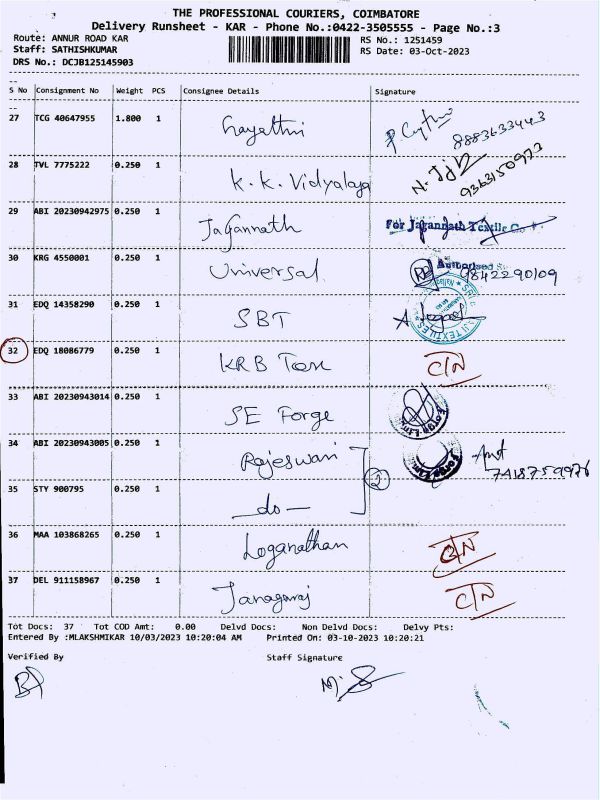 THE PROFESSIONAL COURIERS, COIMBATORE
Delivery Runsheet - KAR - Phone No.:0422-3505555 - Page No.:3
Route: ANNUR ROAD KAR RS No.: 1251459
Staff: SATHISHKUMAR RS Date: 03-Oct-2023
DRS No.: DCJB125145903
S No Consignment No Weight PCS Consignee Details Signature
27 TCG 40647955 1.800 1 Gayathri 8883633443
28 TVL 7775222 0.250 1 K. K. Vidyalaya 9363150973
29 ABI 20230942975 0.250 1 Jagannath For Jagannath Textile Co
30 KRG 4550001 0.250 1 Universal Authorised 9842290109
31 EDQ 14358290 0.250 1 SBT
32 EDQ 18086779 0.250 1 KRB Tex C/N
33 ABI 20230943014 0.250 1 SE Forge
34 ABI 20230943005 0.250 1 Rajeswari 2 7418759976
35 STY 900795 0.250 1 —do—
36 MAA 103868265 0.250 1 Loganathan C/N
37 DEL 911158967 0.250 1 Janagaraj C/N
Tot Docs: 37 Tot COD Amt: 0.00 Delvd Docs: Non Delvd Docs: Delvy Pts:
Entered By :MLAKSHMIKAR 10/03/2023 10:20:04 AM Printed On: 03-10-2023 10:20:21
Verified By Staff Signature